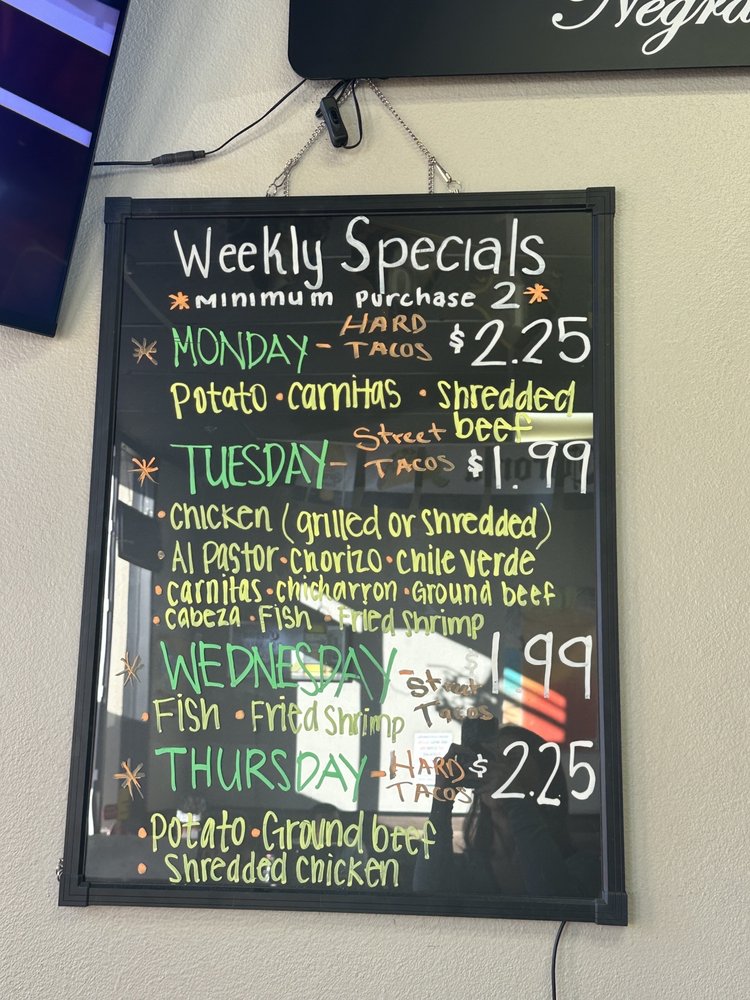 Negra
Weekly Specials
*Minimum Purchase 2*
* MONDAY - HARD TACOS $2.25
Potato • Carnitas • Shredded beef
* TUESDAY - Street TACOS $1.99
• Chicken (grilled or shredded)
• Al Pastor • Chorizo • Chile verde
• Carnitas • Chicharron • Ground beef
• Cabeza • Fish • Fried Shrimp
* WEDNESDAY - Street Tacos $1.99
• Fish • Fried Shrimp
* THURSDAY - HARD TACOS $2.25
• Potato • Ground beef
• Shredded Chicken